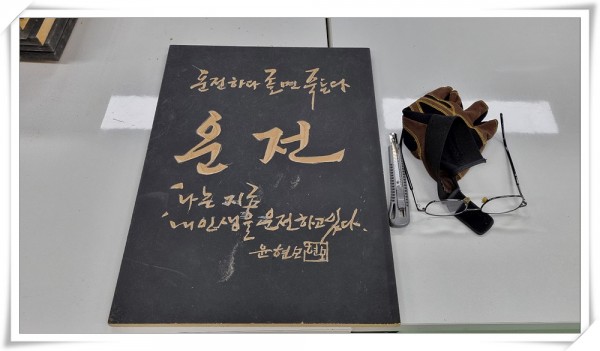 운전하다 졸면 죽는다
운전
"나는 지금
내 인생을 운전하고 있다.
윤현